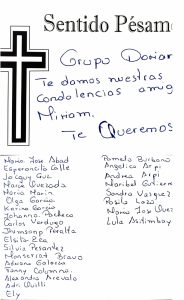 Sentido Pésame
Grupo Doriar
Te damos nuestras
Condolencias amig
Miriam.
Te Queremos
Maria Jose Abad
Esperancita Calle
Jacquy Guz
Maria Quezada
Maria Marin
Olga García
Karina García
Johanna Pacheco
Carlos Verdugo
Jhumsong Peralta
Elsita Zea
Silvia Pesantez
Monserrat Bravo
Adriana Galarza
Fanny Columna
Alexandra Arevalo
Adri Quilli
Ely
Pamela Burbano
Angelica Arpi
Andrea Arpi
Maribel Gutierre
Sandra Vasquez
Rosita Lazo
Maria Jose Quez
Lula Astimbay